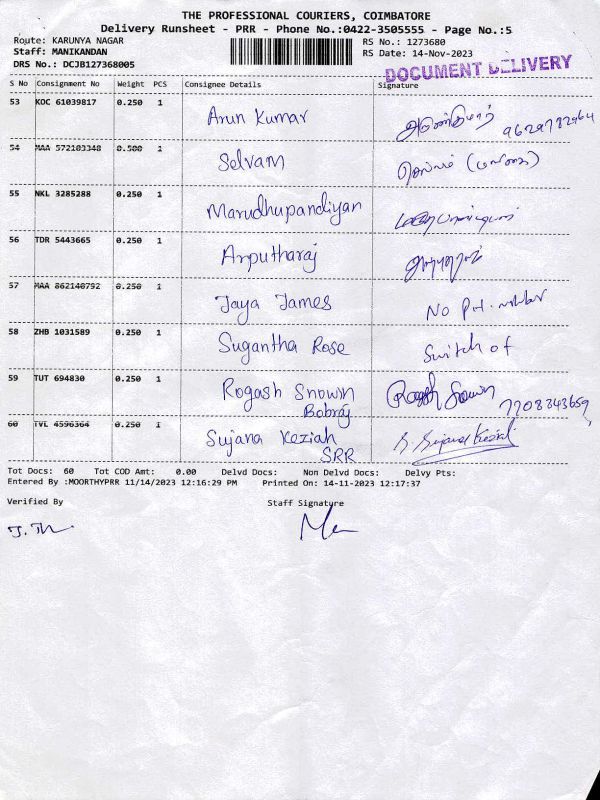 THE PROFESSIONAL COURIERS, COIMBATORE
Delivery Runsheet - PRR - Phone No.:0422-3505555 - Page No.:5
Route: KARUNYA NAGAR RS No.: 1273680
Staff: MANIKANDAN RS Date: 14-Nov-2023
DRS No.: DCJB127368005 DOCUMENT DELIVERY
S No Consignment No Weight PCS Consignee Details Signature
53 KOC 61039817 0.250 1 Arun Kumar அருண்குமார் 9629782964
54 MAA 572103348 0.500 1 Selvam செல்வம்
55 NKL 3285288 0.250 1 Marudhupandiyan
56 TDR 5443665 0.250 1 Arputharaj
57 MAA 862140792 0.250 1 Jaya James No
58 ZHB 1031589 0.250 1 Sugantha Rose Switch of
59 TUT 694830 0.250 1 Rogash Snowin 7708843659
Bobraj
60 TVL 4596364 0.250 1 Sujana Keziah
SRR
Tot Docs: 60 Tot COD Amt: 0.00 Delvd Docs: Non Delvd Docs: Delvy Pts:
Entered By :MOORTHYPRR 11/14/2023 12:16:29 PM Printed On: 14-11-2023 12:17:37
Verified By Staff Signature